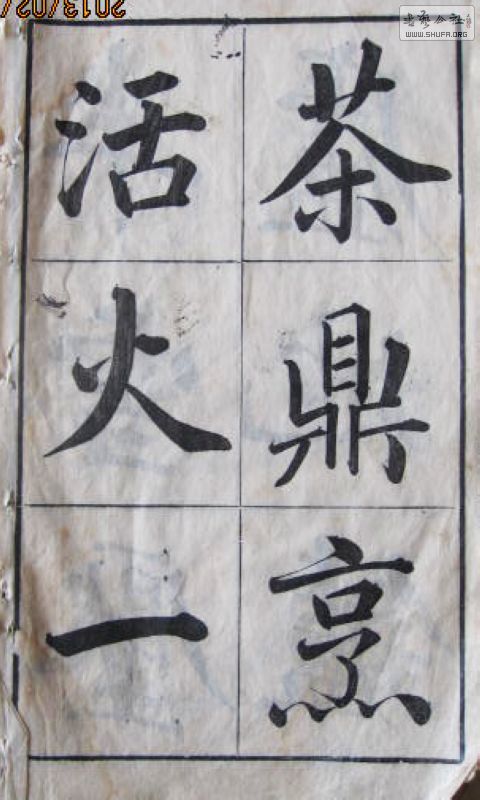 茶鼎烹
活火一
2013/02/
書藝公社
WWW.SHUFA.ORG